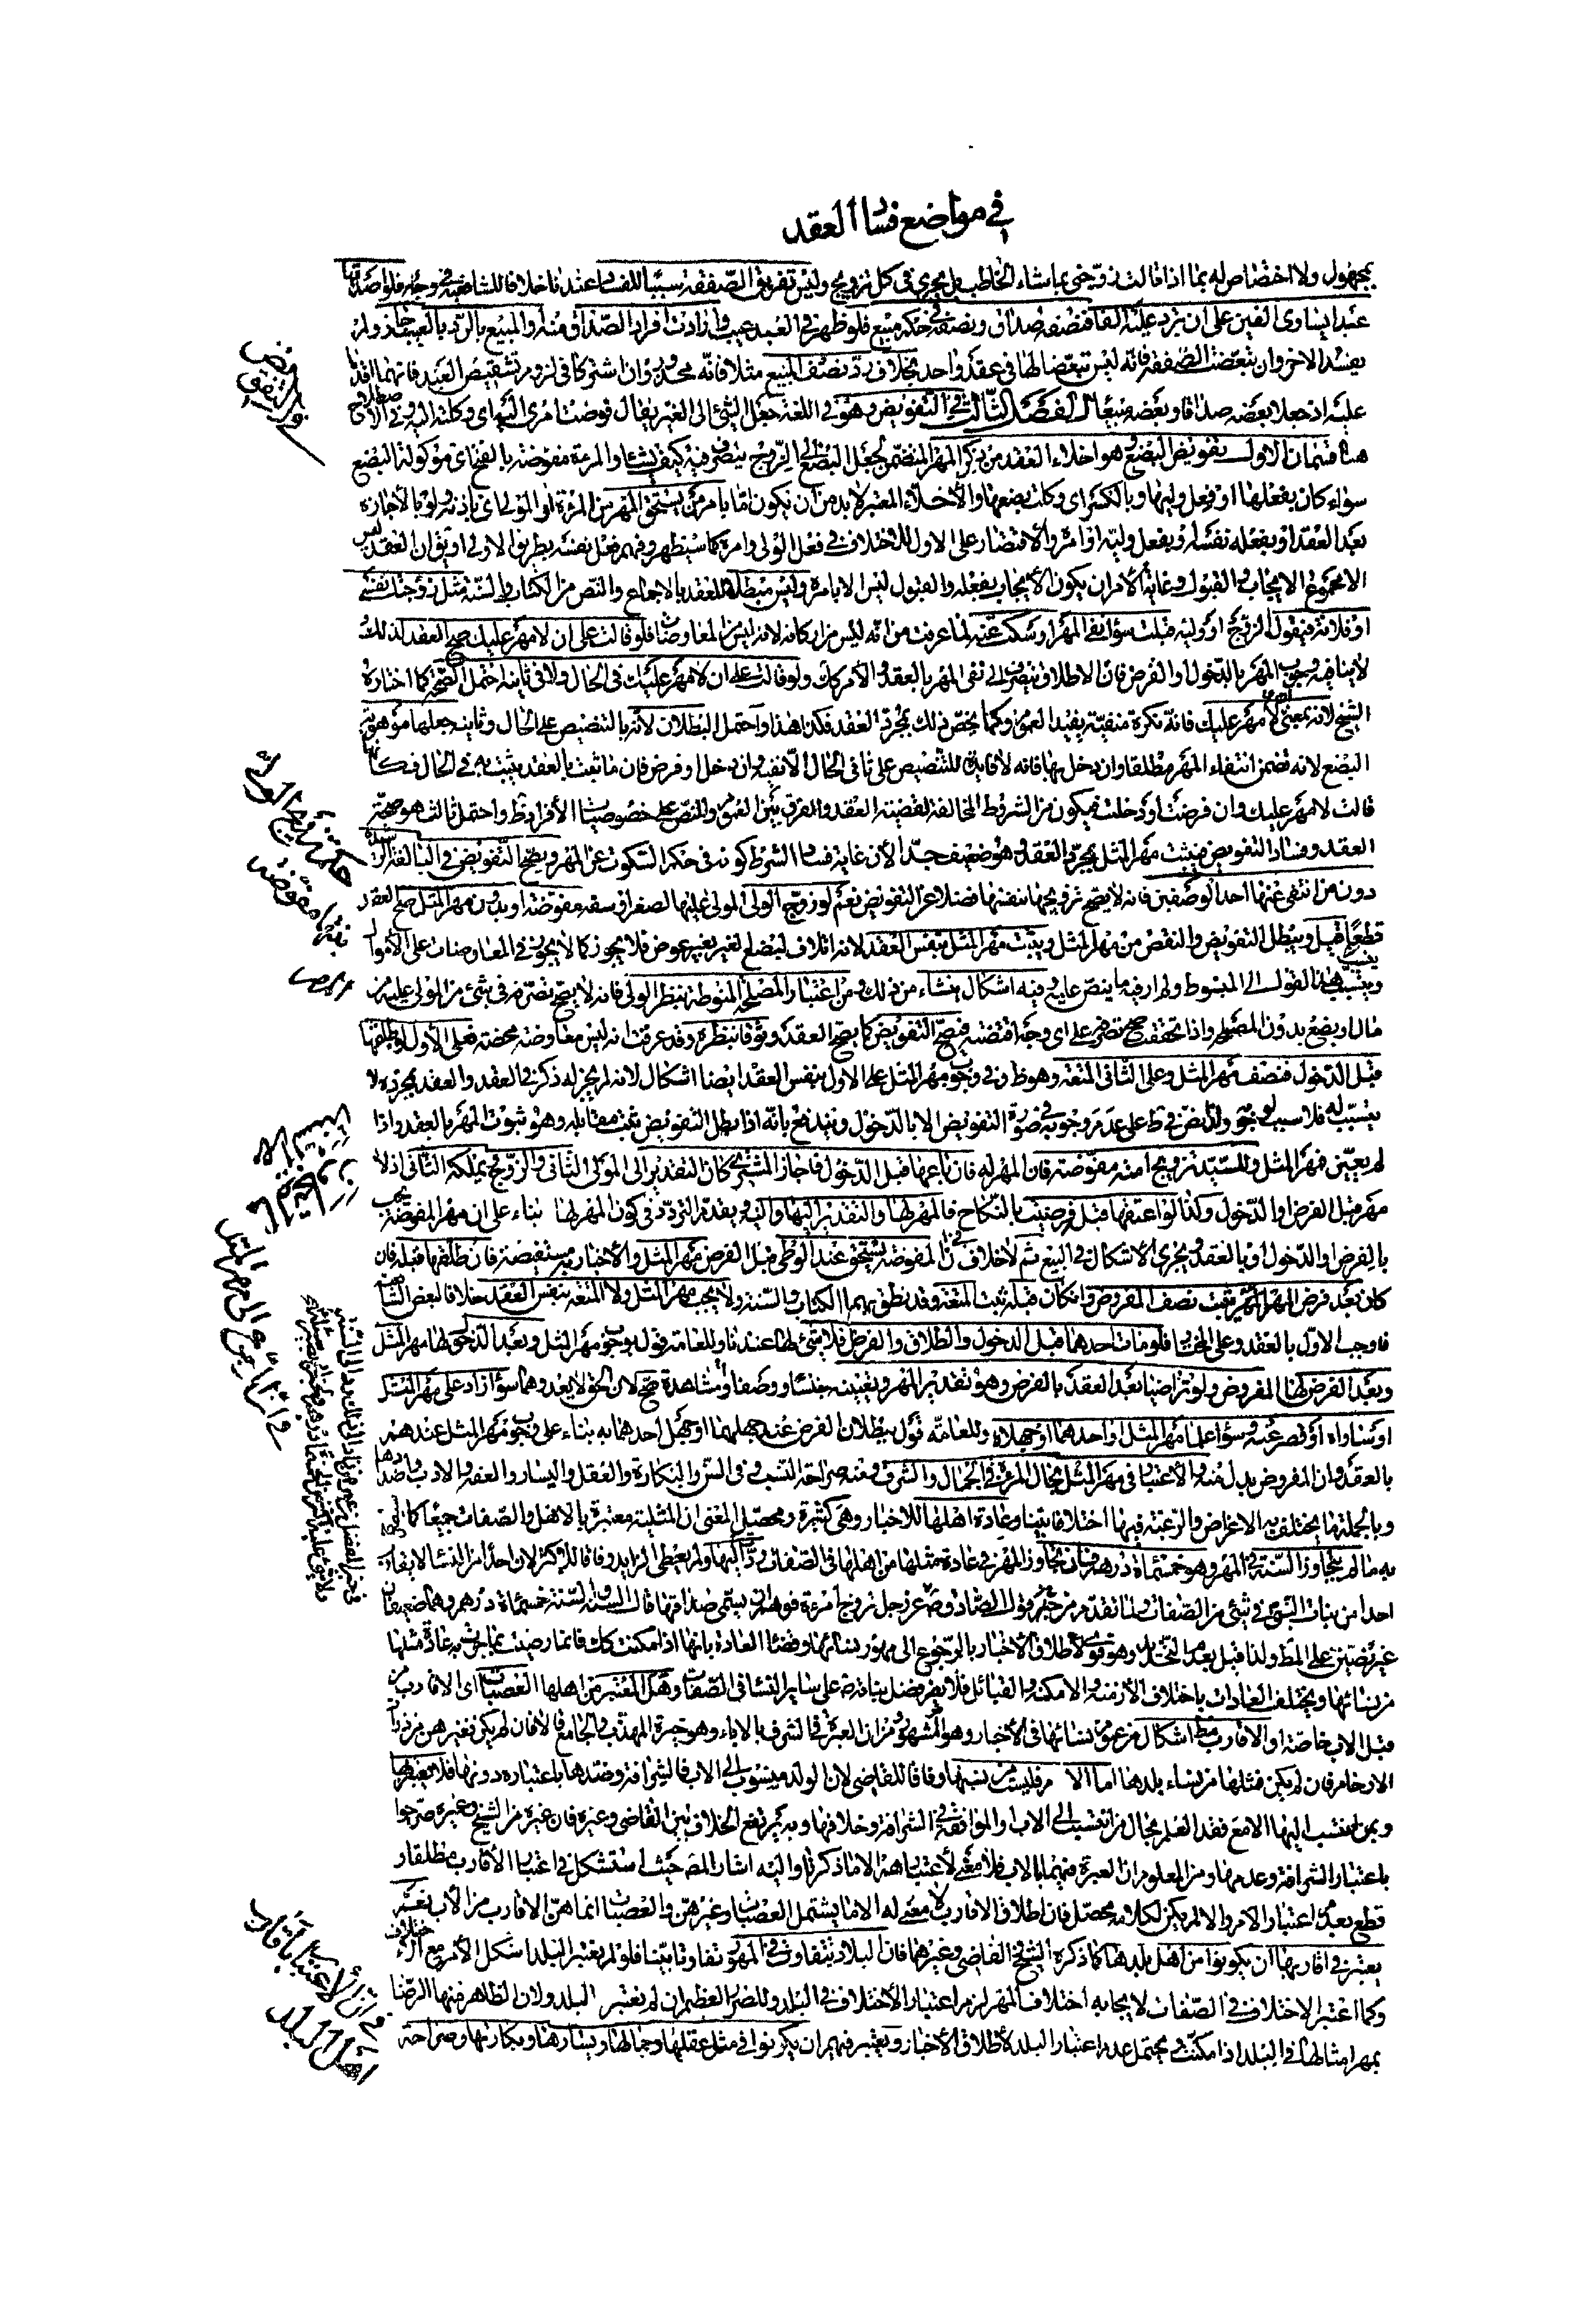 في مواضع فساد العقد
بمجهول ولا اختصاص له بما اذا قالت زوّجني بما شاء الخاطب بل يجري في كل تزويج وليس تفريق الصفقة سببا للفساد عندنا خلافا للشافعية في وجه فلو اصدقها
عبدا يساوي الفين على ان ترد عليه الفا فنصفه صداق ونصفه في حكم مبيع فلو ظهر في العبد عيب وارادت افراد الصداق منه او المبيع بالرد بالعيب جاز ولم
يفسد الاخر وان تبعضت الصفقة فانه ليس تبعضا لها في عقد واحد بخلاف رد نصف المبيع مثلا فانه محذور وان اشتركا في لزوم تشقيص العبد فانهما اقدما
عليه اذ جعلا بعضه صداقا وبعضه مبيعا الفصل الثالث في التفويض وهو في اللغة جعل الشئ الى الغير يقال فوضت امري اليه اي وكلته اليه وفي الاصطلاح
هنا قسمان الاول تفويض البضع وهو اخلاء العقد من ذكر المهر المتضمن لجعل البضع الى الزوج يتصرف فيه كيف يشاء والمرءة مفوضة بالفتح اي موكولة البضع
سواء كان بفعلها او فعل وليها وبالكسر اي وكلت بضعها والاخلاء المعتبر لابد من ان يكون اما بامر من يستحق المهر من المرءة او المولى اي باذنه ولو بالاجازة
بعد العقد او بفعله نفسه او بفعل وليه او امره والاقتصار على الاول للاختلاف في فعل الولي وامره كما سيظهر وفهم فعل نفسه بطريق الاولى او يق ان العقد ليس
الا مجموع الايجاب والقبول وغاية الامر ان يكون الايجاب بفعله والقبول ليس الا بامره وليس مبطلا للعقد بالاجماع والنص من الكتاب والسنة مثل زوجتك نفسي
او فلانة فيقول الزوج او وليه قبلت سواء نفي المهر او سكت عنه لما عرفت من انه ليس من اركانه لانه ليس من المعاوضات فلو قالت على ان لا مهر عليك صح العقد لذلك
لا ينافيه وجوب المهر بالدخول او الفرض فان الاطلاق ينصرف الى نفي المهر بالعقد والامر كك ولو قالت على ان لا مهر عليك في الحال ولا في ثانيه احتمل الصحة كما اختاره
الشيخ لانه بمعنى لا مهر عليك فانه نكرة منفية يفيد العموم وكما يخص ذلك بمجرد العقد فكذا هذا واحتمل البطلان لانه بالتنصيص على الحال وثانيه جعلها موهوبة
البضع لانه تضمن انتفاء المهر مطلقا وان دخل بها فانه لا فايدة للتنصيص على ثاني الحال الا نفيه وان دخل او فرض فان ما ثبت بالعقد يثبت به في الحال فكانها
قالت لا مهر عليك وان فرضت او دخلت فيكون من الشروط المخالفة لقضية العقد والفرق بين العموم والنص على خصوصيات الافراد ظ واحتمل ثالث هو صحة
العقد وفساد التفويض فيثبت مهر المثل بمجرد العقد وهو ضعيف جدا لان غاية فساد الشرط كونه في حكم السكوت عن المهر ويصح التفويض في البالغة الرشيدة
دون من انتفى عنها احد الوصفين فانه لا يصح تزويجها نفسها فضلا عن التفويض نعم لو زوج الولي المولى عليها لصغر او سفه مفوضة او بدون مهر المثل صح العقد
قطعا قيل ويبطل التفويض والنقص من مهر المثل ويثبت مهر المثل بنفس العقد لانه اتلاف لبضع لغير بغير عوض فلا يجوز كما لا يجوز في المعاوضات على الاموال
وينسب هذا القول الى المبسوط ولم ار فيه ما ينص عليه وفيه اشكال ينشاء من ذلك ومن اعتبار المصلحة المنوطة بنظر الولي فانه لا يصح تصرفه في شئ من المولى عليه من
مال او بضع بدون المصلحة واذا تحققت صح تصرفه على اي وجه اقتضته فيصح التفويض كما يصح العقد وثوقا بنظره وقد عرفت انه ليس معاوضة محضة فعلى الاول لو طلقها
قبل الدخول فنصف مهر المثل وعلى الثاني المتعة وهو ظ وفي وجوب مهر المثل على الاول بنفس العقد ايضا اشكال لانه لم يجر له ذكر في العقد والعقد بمجرده لا
لم يعين فمهر المثل وللسيد تزويج امته مفوضة فان المهر له فان باعها قبل الدخول فاجاز المشتري كان التقدير الى المولى الثاني والزوج ويملكه الثاني اذ لا
مهر قبل الفرض او الدخول ولذا لو اعتقها قبله فرضيت بالنكاح فالمهر لها والتقدير اليها واليه ويقدم التردد في كون المهر لها بناء على ان مهر المفوضة يجب
بالفرض او الدخول او بالعقد ويجري الاشكال في البيع ثم لا خلاف في ان المفوضة يستحق عند الوطي قبل الفرض مهر المثل والاخبار به مستفيضة فان طلقها قبله فان
كان بعد فرض المهر يثبت نصف المفروض وان كان قبله ثبت المتعة وقد نطق بهما الكتاب والسنة ولا يجب مهر المثل ولا المتعة بنفس العقد خلافا لبعض الشافعية
فاوجب الاول بالعقد وعلى المختار فلو مات احدهما قبل الدخول والطلاق والفرض فلا شئ لها عندنا وللعامة قول بوجوب مهر المثل وبعد الدخول لها مهر المثل
وبعد الفرض لها المفروض ولو تراضيا بعد العقد بالفرض وهو تقدير المهر وتعيينه جنسا ووصفا او مشاهدة صح لان الحق لا يعدوهما سواء زاد على مهر المثل
او ساواه او قصر عنه وسواء علما مهر المثل او احدهما او جهلاه وللعامة قول ببطلان الفرض عند جهلهما او جهل احدهما به بناء على وجوب مهر المثل عندهم
بالعقد وان المفروض بدل منه والاعتبار في مهر المثل بحال المرءة في الجمال والشرف ومنه صراحة النسب وفي السن والبكارة والعقل واليسار والعفة والادب واضدادها
وبالجملة ما يختلف به الاغراض والرغبة فيها اختلافا بينا وعادة اهلها للاخبار وهي كثيرة ومحصل المعنى ان المثلية معتبرة بالاهل والصفات جميعا كل ذلك
به ما لم يتجاوز السنة في المهر وهو خمسمائة درهم فان تجاوز المهر في عادة مثلها من اهلها في الصفات رد اليها ولم يعط الزايد وفاقا للاكثر لان احدا من النساء لا يفاق
احدا من بنات النبي في شئ من الصفات ولما تقدم من خبر
غير نصين على المط ولذا قيل بعدم التحديد وهو قوي لاطلاق الاخبار بالرجوع الى مهور نسائها وقضاء العادة بانها اذا مكنت كك فانما رضيت بما جرت به عادة مثلها
من نسائها ويختلف العادات باختلاف الازمنة والامكنة والقبائل فلا يضر فضل بناته ص على ساير النساء في الصفات وهل المعتبر من اهلها العصبات اي الاقارب من
قبل الاب خاصة او الاقارب مط اشكال من عموم نسائها في الاخبار وهو المشهور ومن ان العبرة في الشرف بالاباء وهو خيرة المهذب والجامع فان لم يكن فغيرهن من ذوات
الارحام فان لم يكن فمثلها من نساء بلدها اما الام فليست من نسبها وفاقا للقاضي لان الولد منسوب الى الاب فالشرافة وضدها باعتباره دونها فلا يعتبرها
وبمن انتسب اليها الا مع فقد العلم بحال من انتسب الى الاب او الموافقة في الشرافة وخلافها وبه يرتفع الخلاف بين القاضي وغيره فان غيره من الشيخ وغيره صرحوا
باعتبار الشرافة وعدمها ومن المعلوم ان العبرة فيهما بالاب فلا معنى لاعتبارها هنا الا ما ذكرنا واليه اشار المصنف حيث استشكل في اعتبار الاقارب مطلقا و
قطع بعدم اعتبار الام والا لم يكن لكلامه محصل فان اطلاق الاقارب لا معنى له الا ما يشتمل العصبات وغيرهن والعصبات انما هن الاقارب من الاب نفسه
يعتبر في اقاربها ان يكونوا من اهل بلدها كما ذكره الشيخ والقاضي وغيرهما فان البلاد تتفاوت في المهور تفاوتا بينا فلو لم يعتبر البلد اشكل الامر مع
وكما اعتبر الاختلاف في الصفات لايجابه اختلاف المهر لزم اعتبار الاختلاف في البلد وللضرر العظيم ان لم يعتبر البلد ولان الظاهر منها الرضا
بمهر امثالها في البلد اذا مكنت ويحتمل عدم اعتبار البلد لاطلاق الاخبار ويعتبر فيهم ان يكونوا في مثل عقلها وجمالها ويسارها وبكارتها وصراحة
في التفويض
حكم تزويج الولي